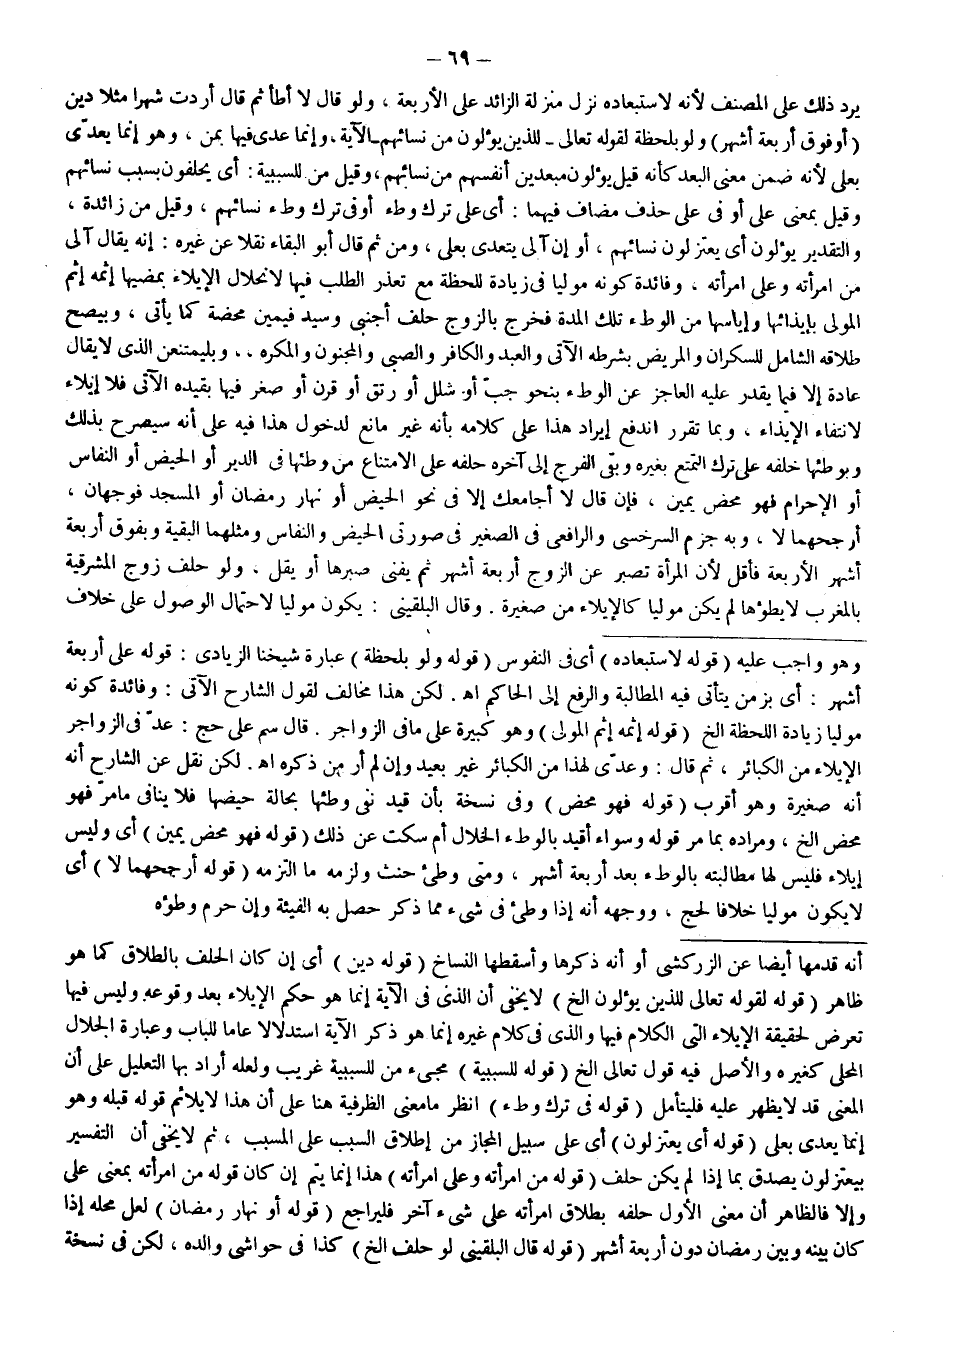 — ٦٩ —
يرد ذلك على المصنف لأنه لاستبعاده نزل منزلة الزائد على الأربعة ، ولو قال لا أطأ ثم قال أردت شهرا مثلا دين
( أوفوق أربعة أشهر ) ولو بلحظة لقوله تعالى ـ للذين يؤلون من نسائهم ـ الآية ، وإنما عدى فيها بمن ، وهو إنما يعدّى
بعلى لأنه ضمن معنى البعد كأنه قيل يؤلون مبعدين أنفسهم من نسائهم ، وقيل من للسببية : أى يحلفون بسبب نسائهم
وقيل بمعنى على أو فى على حذف مضاف فيهما : أى على ترك وطء أوفى ترك وطء نسائهم ، وقيل من زائدة ،
والتقدير يؤلون أى يعتزلون نسائهم ، أو إن آلى يتعدى بعلى ، ومن ثم قال أبو البقاء نقلا عن غيره : إنه يقال آلى
من امرأته وعلى امرأته ، وفائدة كونه موليا فى زيادة للحظة مع تعذر الطلب فيها لانحلال الإيلاء بمضيها إثمه إثم
المولى بإيذائها وإياسها من الوطء تلك المدة فخرج بالزوج حلف أجنبي وسيد فيمين محضة كما يأتى ، وبيصح
طلاقه الشامل للسكران والمريض بشرطه الآتى والعبد والكافر والصبي والمجنون والمكره ، ، وبليمتنعن الذى لايقال
عادة إلا فيما يقدر عليه العاجز عن الوطء بنحو جبّ أو شلل أو رتق أو قرن أو صغر فيها بقيده الآتى فلا إيلاء
لانتفاء الإيذاء ، وبما تقرر اندفع إيراد هذا على كلامه بأنه غير مانع لدخول هذا فيه على أنه سيصرح بذلك
وبوطئها حلفه على ترك التمتع بغيره وبفى الفرج إلى آخره حلفه على الامتناع من وطئها فى الدبر أو الحيض أو النفاس
أو الإحرام فهو محض يمين ، فإن قال لا أجامعك إلا فى نحو الحيض أو نهار رمضان أو المسجد فوجهان ،
أرجحهما لا ، وبه جزم السرخسى والرافعى فى الصغير فى صورتى الحيض والنفاس ومثلهما البقية وبفوق أربعة
أشهر الأربعة فأقل لأن المرأة تصبر عن الزوج أربعة أشهر ثم يفنى صبرها أو يقل ، ولو حلف زوج المشرقية
بالمغرب لايطؤها لم يكن موليا كالإيلاء من صغيرة . وقال البلقينى : يكون موليا لاحتمال الوصول على خلاف
وهو واجب عليه ( قوله لاستبعاده ) أى فى النفوس ( قوله ولو بلحظة ) عبارة شيخنا الزيادى : قوله على أربعة
أشهر : أى بزمن يتأتى فيه المطالبة والرفع إلى الحاكم اه . لكن هذا مخالف لقول الشارح الآتى : وفائدة كونه
موليا زيادة اللحظة الخ ( قوله إثمه إثم المولى ) وهو كبيرة على مافى الزواجر . قال سم على حج : عدّ فى الزواجر
الإيلاء من الكبائر ، ثم قال : وعدّى لهذا من الكبائر غير بعيد وإن لم أر من ذكره اه . لكن نقل عن الشارح أنه
أنه صغيرة وهو أقرب ( قوله فهو محض ) وفى نسخة بأن قيد نفى وطئها بحالة حيضها فلا ينافى مامرّ فهو
محض الخ ، ومراده بما مر قوله وسواء أقيد بالوطء الحلال أم سكت عن ذلك ( قوله فهو محض يمين ) أى وليس
إيلاء فليس لها مطالبته بالوطء بعد أربعة أشهر ، ومتى وطئ حنث ولزمه ما التزمه ( قوله أرجحهما لا ) أى
لايكون موليا خلافا لحج ، ووجهه أنه إذا وطئ فى شىء مما ذكر حصل به الفيئة وإن حرم وطؤه
أنه قدمها أيضا عن الزركشى أو أنه ذكرها وأسقطها النساخ ( قوله دين ) أى إن كان الحلف بالطلاق كما هو
ظاهر ( قوله لقوله تعالى للذين يؤلون الخ ) لايخفى أن الذى فى الآية إنما هو حكم الإيلاء بعد وقوعه وليس فيها
تعرض لحقيقة الإيلاء التى الكلام فيها والذى فى كلام غيره إنما هو ذكر الآية استدلالا عاما للباب وعبارة الجلال
المحلى كغيره والأصل فيه قول تعالى الخ ( قوله للسببية ) مجىء من للسببية غريب ولعله أراد بها التعليل على أن
المعنى قد لايظهر عليه فليتأمل ( قوله فى ترك وطء ) انظر مامعنى الظرفية هنا على أن هذا لايلائم قوله قبله وهو
إنما يعدى بعلى ( قوله أى يعتزلون ) أى على سبيل المجاز من إطلاق السبب على المسبب ، ثم لايخفى أن التفسير
بيعتزلون يصدق بما إذا لم يكن حلف ( قوله من امرأته وعلى امرأته ) هذا إنما يتم إن كان قوله من امرأته بمعنى على
وإلا فالظاهر أن معنى الأول حلفه بطلاق امرأته على شىء آخر فليراجع ( قوله أو نهار رمضان ) لعل محله إذا
كان بينه وبين رمضان دون أربعة أشهر ( قوله قال البلقينى لو حلف الخ ) كذا فى حواشى والده ، لكن فى نسخة